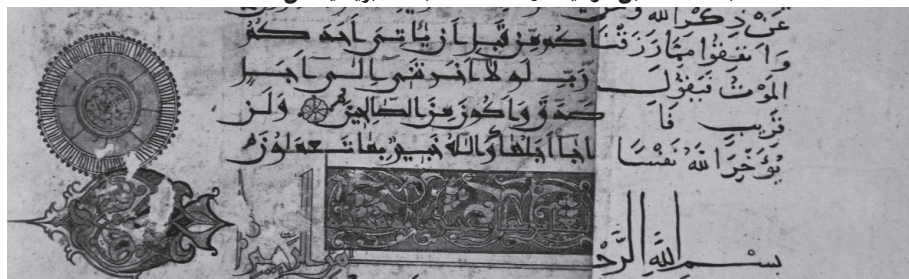 عَنْ ذِكْرِ اللَّهِ
وَانفِقُوا مِمَّا رَزَقْنَاكُم مِن قَبلِ اَن يَاتِيَ اَحَدَكُمُ
المَوْتُ فَيَقُولَ رَبِّ لَولَا اَخَّرتَنِي اِلَى اَجَلٍ
قَرِيبٍ فَاصَّدَّقَ وَاَكُونَ مِنَ الصَّالِحِينَ وَلَن
يُؤَخِّرَ اللهُ نَفْسًا اِذَا جَا اَجَلُهَا وَاللهُ خَبِيرٌ بِمَا تَعمَلُونَ
بِسْمِ اللَّهِ الرَّحْمَنِ الرَّحِيمِ